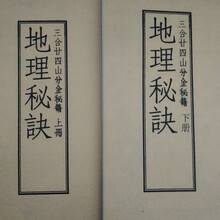 三合廿四山分金秘籍 上冊
地理秘訣
三合廿四山分金秘籍 下册
地理秘訣